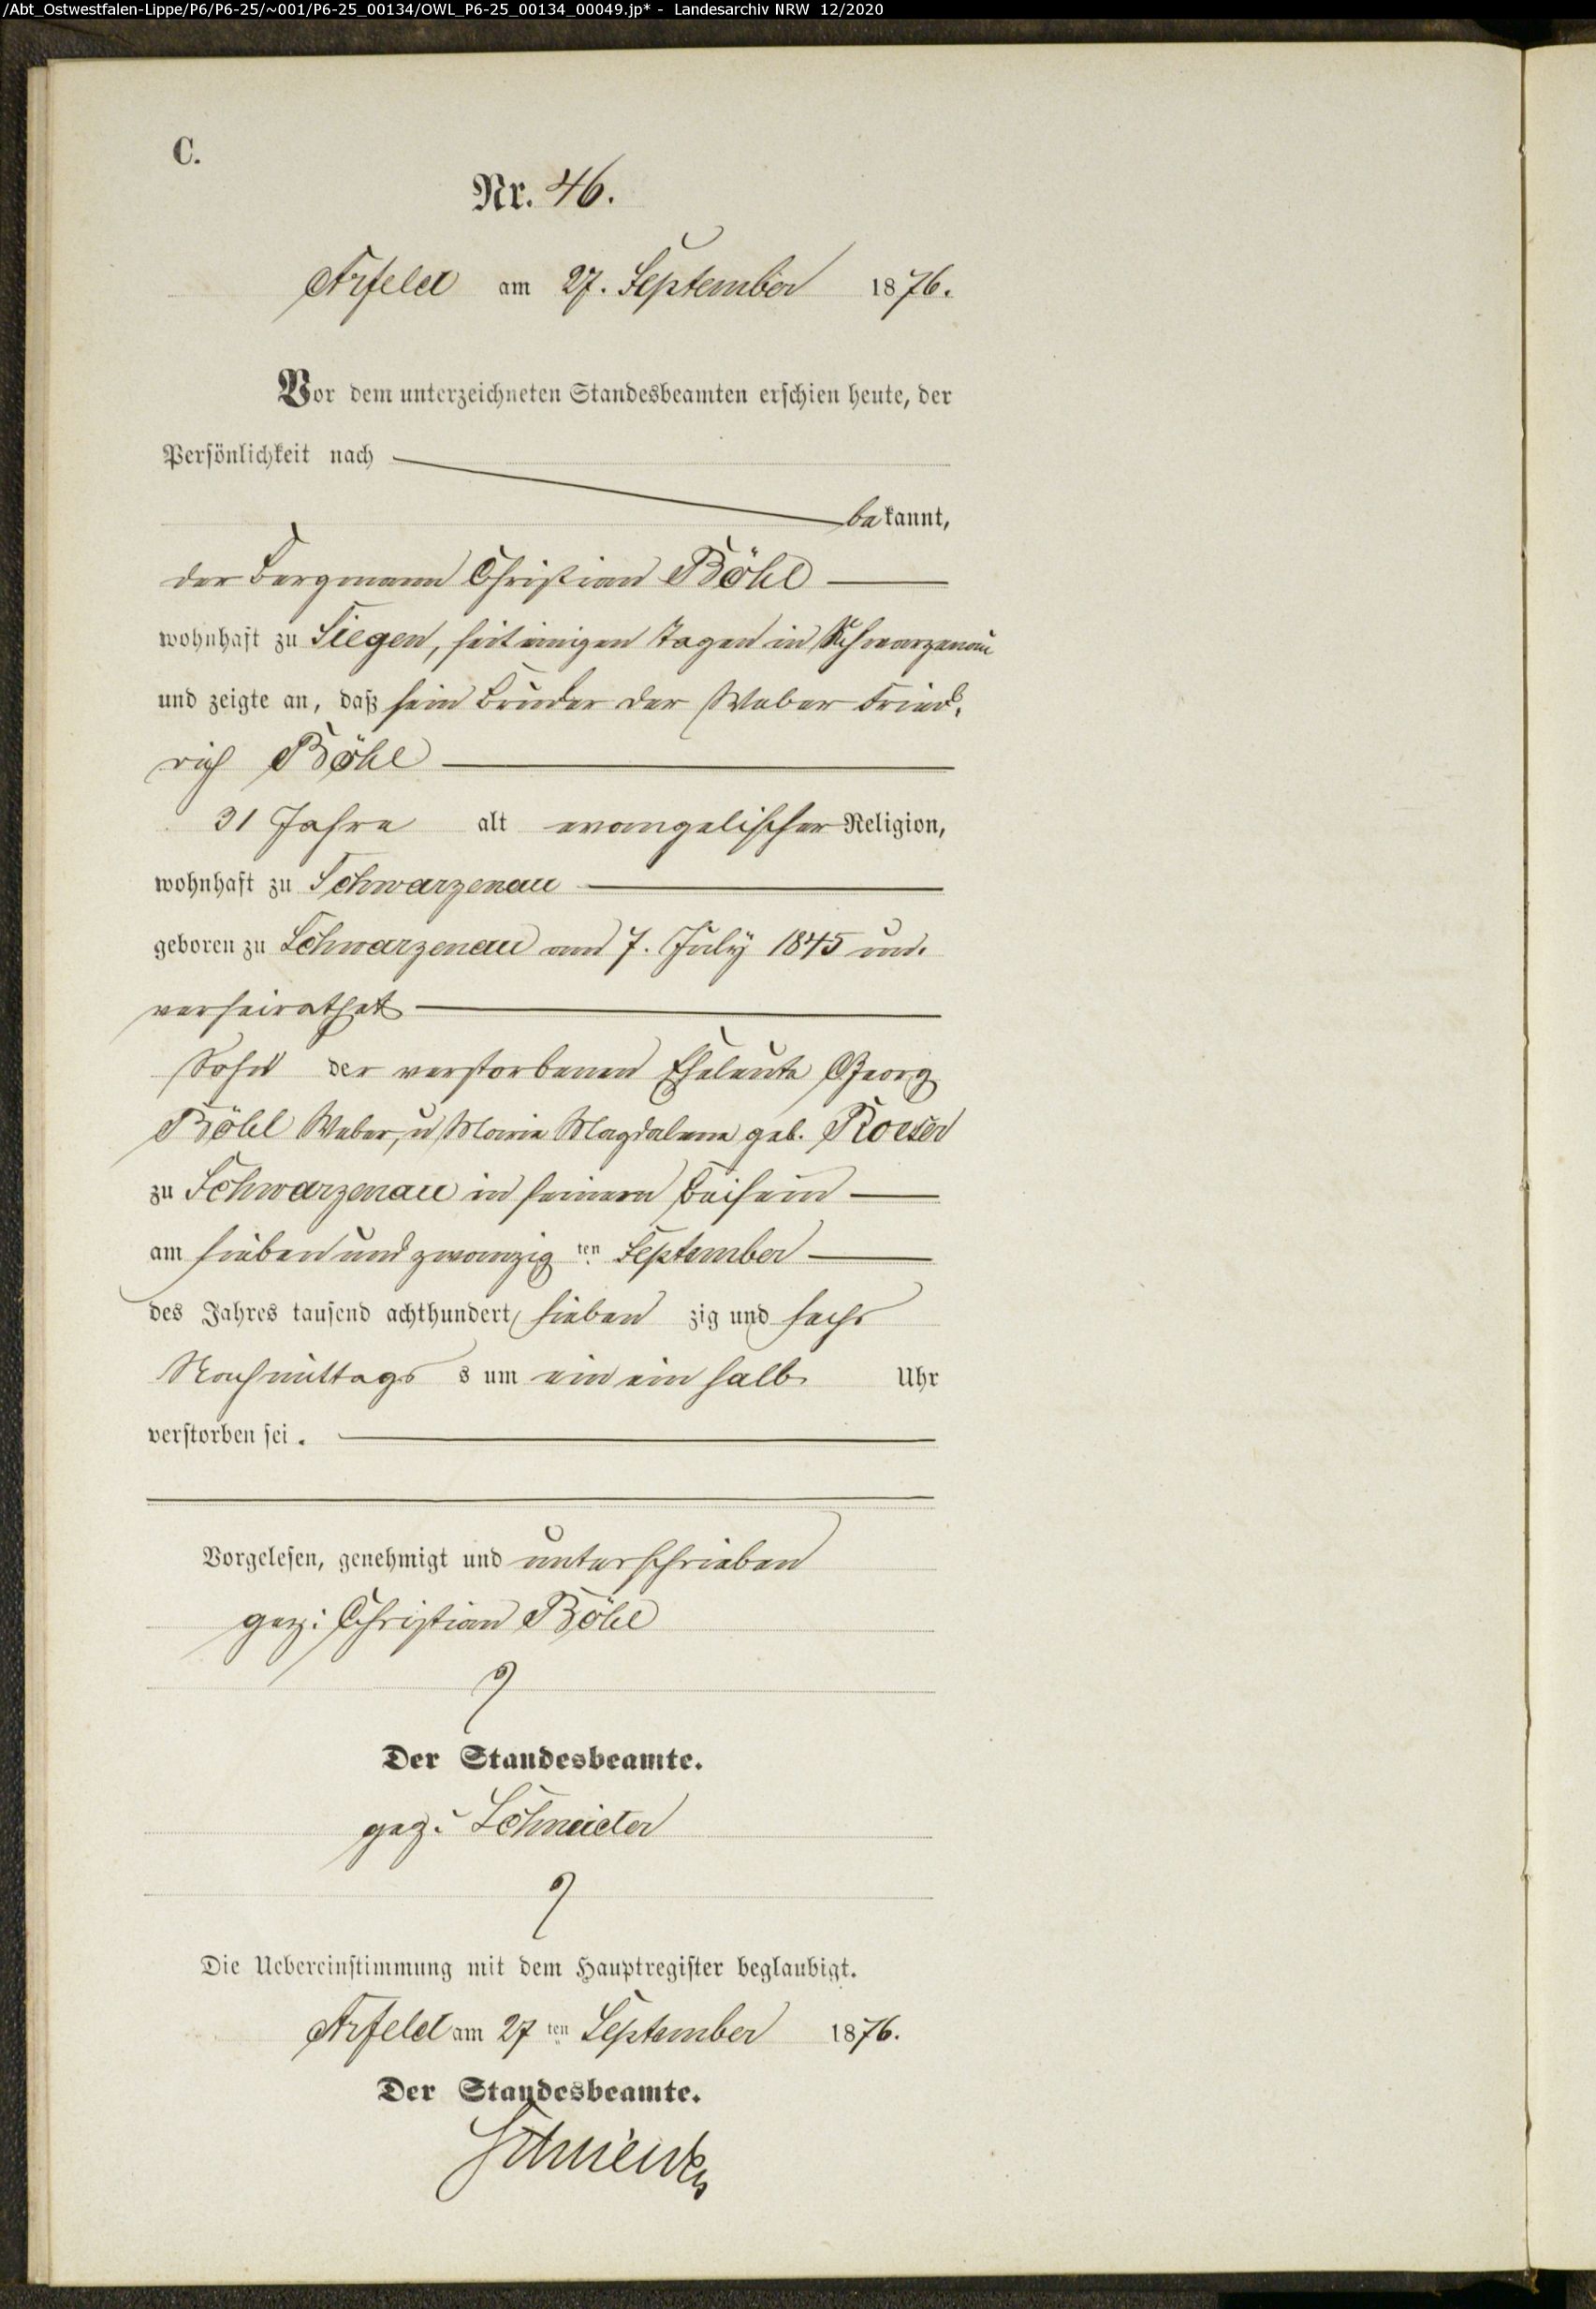 /Abt_Ostwestfalen-Lippe/P6/P6-25/~001/P6-25_00134/OWL_P6-25_00134_00049.jp* - Landesarchiv NRW 12/2020
C.
Nr. 46.
Arfeld am 27. September 1876.
Vor dem unterzeichneten Standesbeamten erschien heute, der
Persönlichkeit nach
bekannt,
der Bergmann Christian Böhl
wohnhaft zu Siegen, seit einigen Tagen in Schwarzenau
und zeigte an, daß sein Bruder der Weber Fried,
rich Böhl
31 Jahre alt evangelischer Religion,
wohnhaft zu Schwarzenau
geboren zu Schwarzenau am 7. July 1845 un,
verheirathet
Sohn der verstorbenen Eheleute Georg
Böhl Weber, u Marie Magdalena geb. Roeser
zu Schwarzenau in seinem Beisein
am sieben und zwanzig ten September
des Jahres tausend achthundert sieben zig und sechs
Nachmittags s um ein ein halb Uhr
verstorben sei.
Vorgelesen, genehmigt und unterschrieben
gez: Christian Böhl
Der Standesbeamte.
gez: Schneider
Die Uebereinstimmung mit dem Hauptregister beglaubigt.
Arfeld am 27 ten September 1876.
Der Standesbeamte.
Schneider